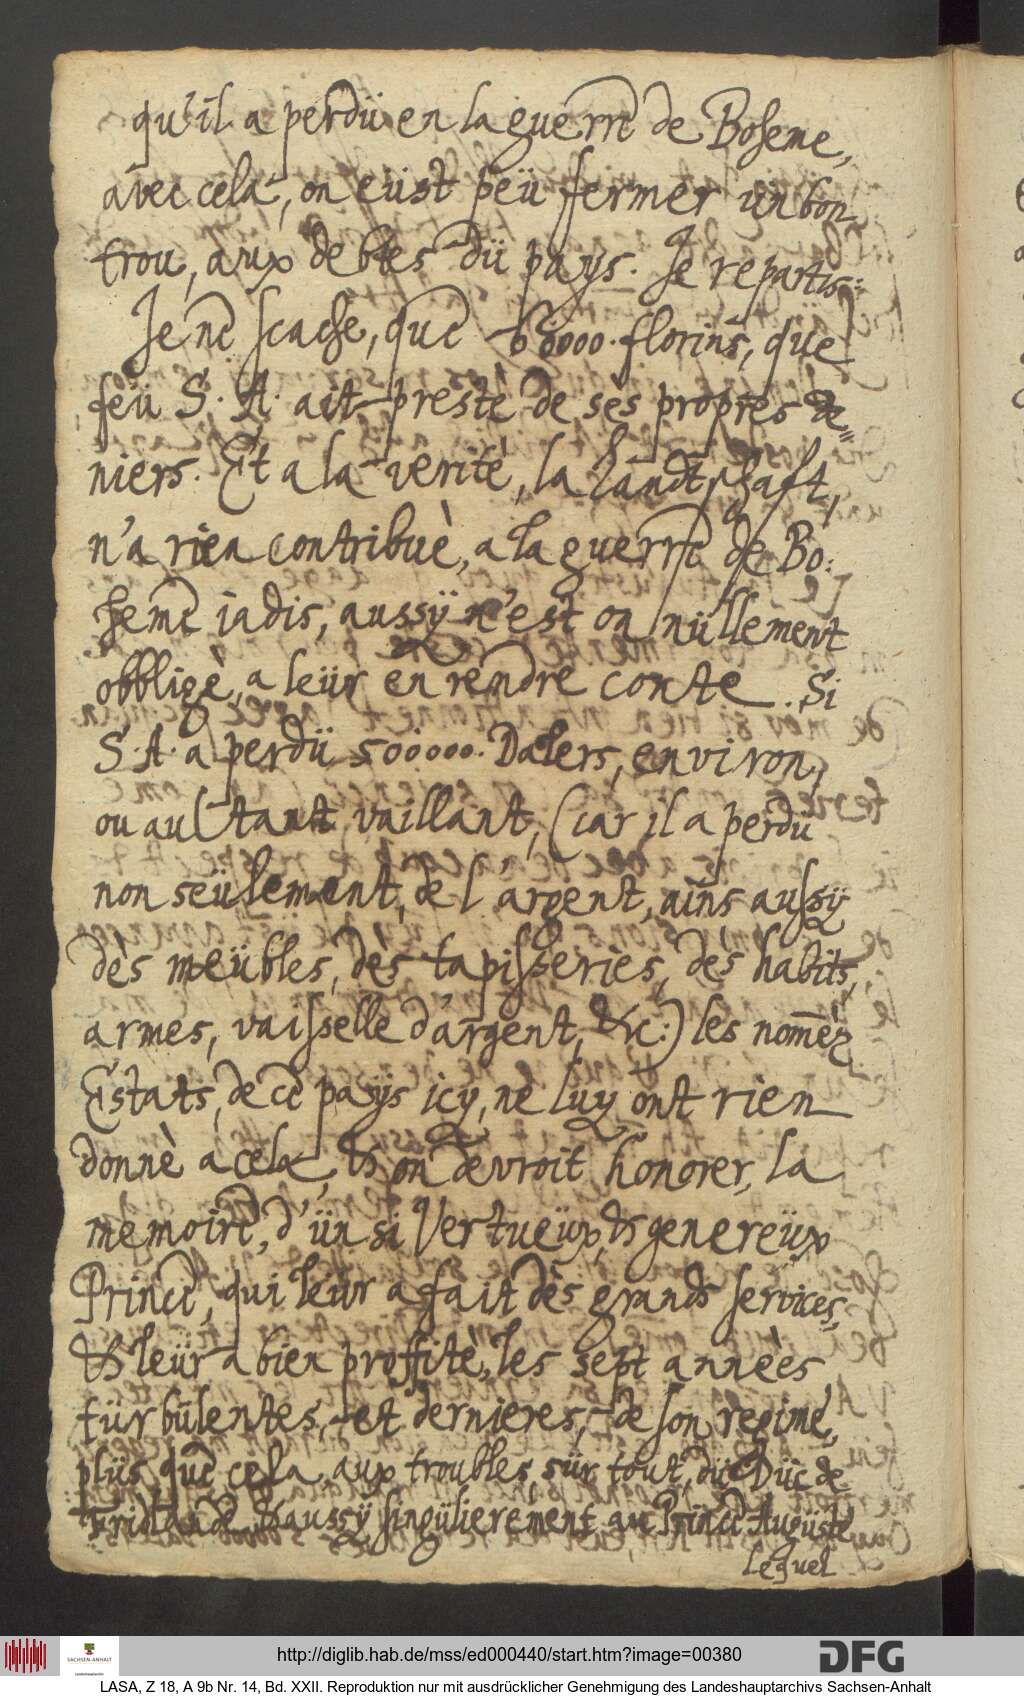 qu'il a perdü en la guerre de Boheme,
avec cela, on eüst peü fermer ün bon
trou, aux debtes dü pays. Je repartis:
Je ne scache, que 68000. florins, que
feü S. A. ait presté de sès propres de=
niers. Et a la veritè, la Landtschaft,
n'a rien contribuè, a la guerre de Bo:
heme jadis, aussÿ n'est on nüllement
obbligè, a leür en rendre conte. Si
S. A. a perdü 500000. Dalers, environ,
ou aultant vaillant, (car il a perdü
non seülement, de l'argent, ains aussÿ
dès meübles, dès tapisseries, dès habits,
armes, vaisselle d'argent, &c:) les nom̄èz
Estats, de ce paÿs icy, ne luy ont rien
donnè a cela, & on devroit honorer, la
memoire, d'ün si Vertueüx, & genereüx
Prince, qui leür a fait dès grands services,
& leür a bien proffitè, les sept annèes
türbülentes, et dernieres, de son regime,
plüs que cela aux troubles sür tout, dü Düc de
Fridlande & aussÿ singülierement au Prince Augüste
lequel
http://diglib.hab.de/mss/ed000440/start.htm?image=00380
DFG
SACHSEN-ANHALT
LASA, Z 18, A 9b Nr. 14, Bd. XXII. Reproduktion nur mit ausdrücklicher Genehmigung des Landeshauptarchivs Sachsen-Anhalt